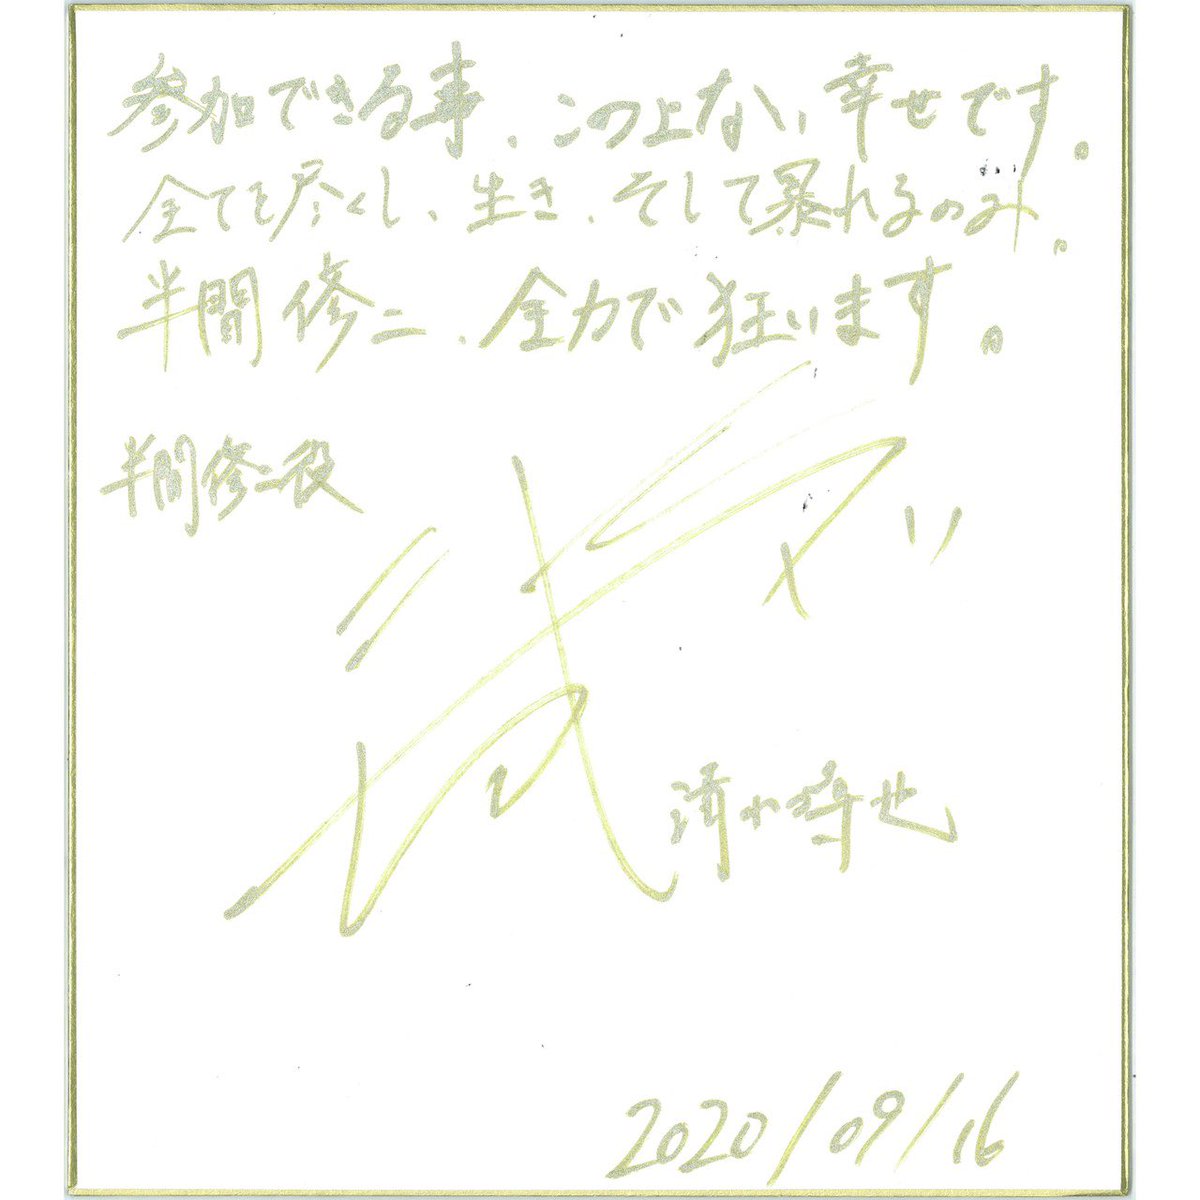 参加できる事、この上ない幸せです。
全てを尽くし、生き、そして暴れるのみ。
半間修二、全力で狂います。
半間修二役
清水尋也
2020/09/16